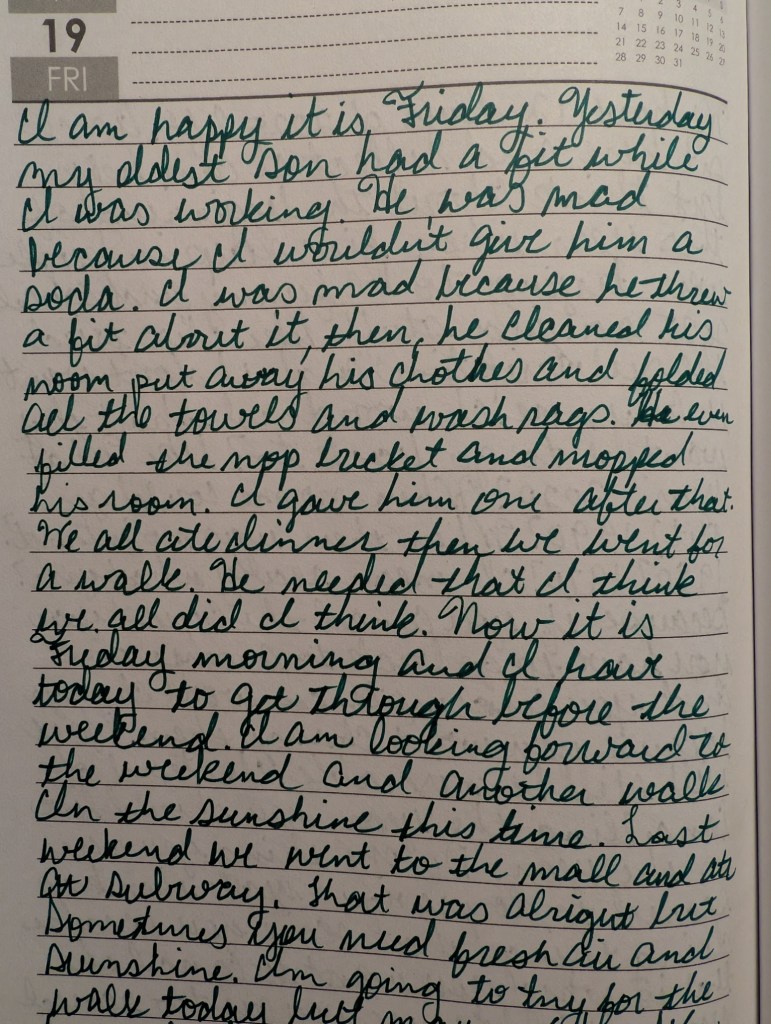 19
FRI
1 2 3 4 5 6
7 8 9 10 11 12 13
14 15 16 17 18 19 20
21 22 23 24 25 26 27
28 29 30 31
I am happy it is Friday. Yesterday
my oldest son had a fit while
I was working. He was mad
because I wouldn't give him a
soda. I was mad because he threw
a fit about it, then, he cleaned his
room put away his clothes and folded
all the towels and wash rags. He even
filled the mop bucket and mopped
his room. I gave him one after that.
We all ate dinner then we went for
a walk. He needed that I think
we all did I think. Now it is
Friday morning and I have
today to get through before the
weekend. I am looking forward to
the weekend and another walk
In the sunshine this time. Last
weekend we went to the mall and ate
at Subway. That was alright but
sometimes you need fresh air and
sunshine. I'm going to try for the
walk today but